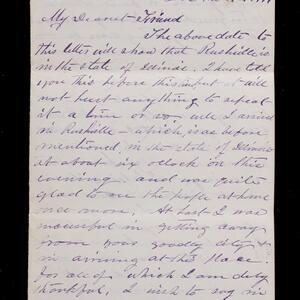 My Dearest Friend
The above date to
this letter will show that Rushville is
in the state of Illinois. I have told
you this before this but it will
not hurt anything to repeat
it a time or so. well I arrived
in Rushville - which is as before
mentioned, in the state of Illinois
at about six oclock on this
evening and was quite
glad to see the people at home
once more. At last I was
successful in getting away
from your goodly city &
in arriving at this place.
for all of which I am duly
thankful. I wish to say in